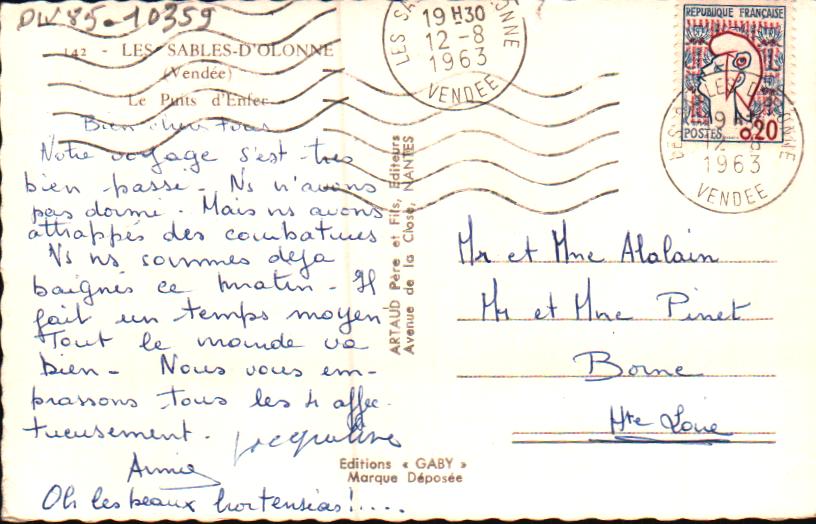 DW85-10359
142 - LES SABLES-D'OLONNE
(Vendée)
Le Puits d'Enfer
Bien chers tous
Notre voyage s'est très
bien passé - Ns n'avons
pas dormi. Mais ns avons
attrappés des courbatures
Ns ns sommes déjà
baignés ce matin - Il
fait un temps moyen
Tout le monde va
bien - Nous vous em-
brassons tous les 4 affec-
tueusement.
Jacqueline
Annie
Oh les beaux hortensias!....
ARTAUD Père et Fils, Editeurs
Avenue de la Close, NANTES
Editions « GABY »
Marque Déposée
19H30
12-8
1963
VENDEE
REPUBLIQUE FRANÇAISE
POSTES 0,20
LES SABLES D'OLONNE
19H30
12-8
1963
VENDEE
Mr et Mme Alalain
Mr et Mme Pinet
Borne
Hte Loire